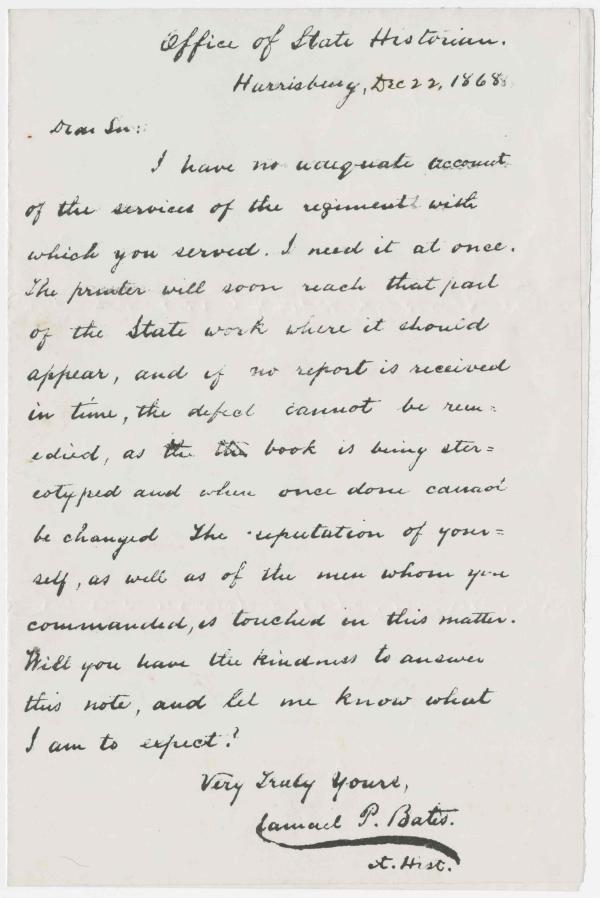 Office of State Historian.
Harrisburg, Dec 22, 1868
Dear Sir:
I have no adequate account
of the services of the regiment with
which you served. I need it at once.
The printer will soon reach that part
of the State work where it should
appear, and if no report is received
in time, the defect cannot be rem=
edied, as the book is being ster=
eotyped and when once done cannot
be changed The reputation of your=
self, as well as of the men whom you
commanded, is touched in this matter.
Will you have the kindness to answer
this note, and let me know what
I am to expect?
Very Truly Yours,
Samuel P. Bates.
St. Hist.